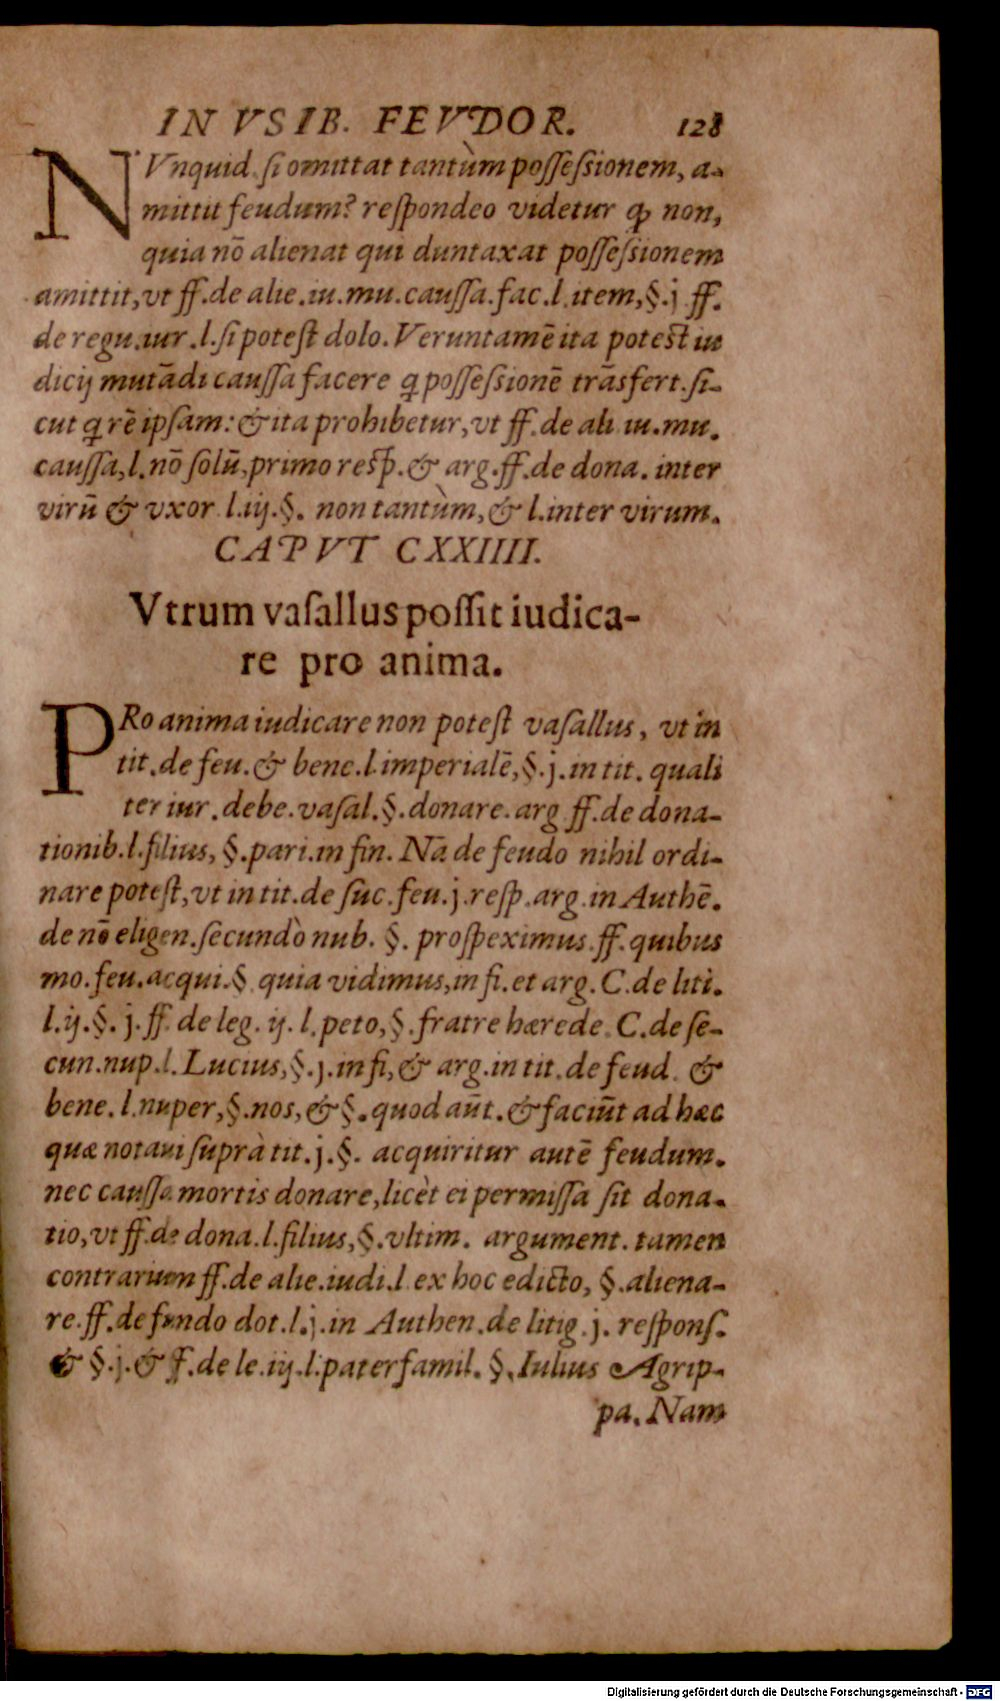 IN VSIB. FEVDOR. 128
NVnquid si omittat tantùm possessionem, a-
mittit feudum? respondeo videtur ꝙ non,
quia nō alienat qui duntaxat possessionem
amittit, vt ff. de alie. iu. mu. caussa. fac. l. item, §. j ff.
de regu. iur. l. si potest dolo. Veruntamē ita potest iu
dicij mutādi caussa facere ꝗ possessionē trāsfert. si-
cut ꝗ rē ipsam: & ita prohibetur, vt ff. de ali. iu. mu.
caussa, l. nō solū, primo resp̄. & arg. ff. de dona. inter
virū & vxor l. iij. §. non tantùm, & l. inter virum.
CAPVT CXXIIII.
Vtrum vasallus possit iudica-
re pro anima.
PRo anima iudicare non potest vasallus, vt in
tit. de feu. & bene. l. imperialē, §. j. in tit. quali
ter iur. debe. vasal. §. donare. arg ff. de dona-
tionib. l. filius, §. pari. in fin. Nā de feudo nihil ordi-
nare potest, vt in tit. de suc. feu. j. resp. arg. in Authē.
de nō eligen. secundò nub. §. prospeximus. ff. quibus
mo. feu. acqui. § quia vidimus, in fi. et arg. C. de liti.
l. ij. §. j. ff de leg. ij. l. peto, §. fratre hærede. C. de se-
cun. nup. l. Lucius, §. j. in fi, & arg. in tit. de feud. &
bene. l. nuper, §. nos, & §. quod aūt. & faciūt ad hæc
quæ notaui suprà tit. j. §. acquiritur autē feudum.
nec caussa mortis donare, licèt ei permissa sit dona-
tio, vt ff. de dona. l. filius, §. vltim. argument. tamen
contrarium ff. de alie. iudi. l. ex hoc edicto, §. aliena-
re. ff. de fundo dot. l. j. in Authen. de litig. j. respons.
& §. j. & ff. de le. iij. l. paterfamil. §. Iulius Agrip-
pa. Nam
Digitalisierung gefördert durch die Deutsche Forschungsgemeinschaft - DFG